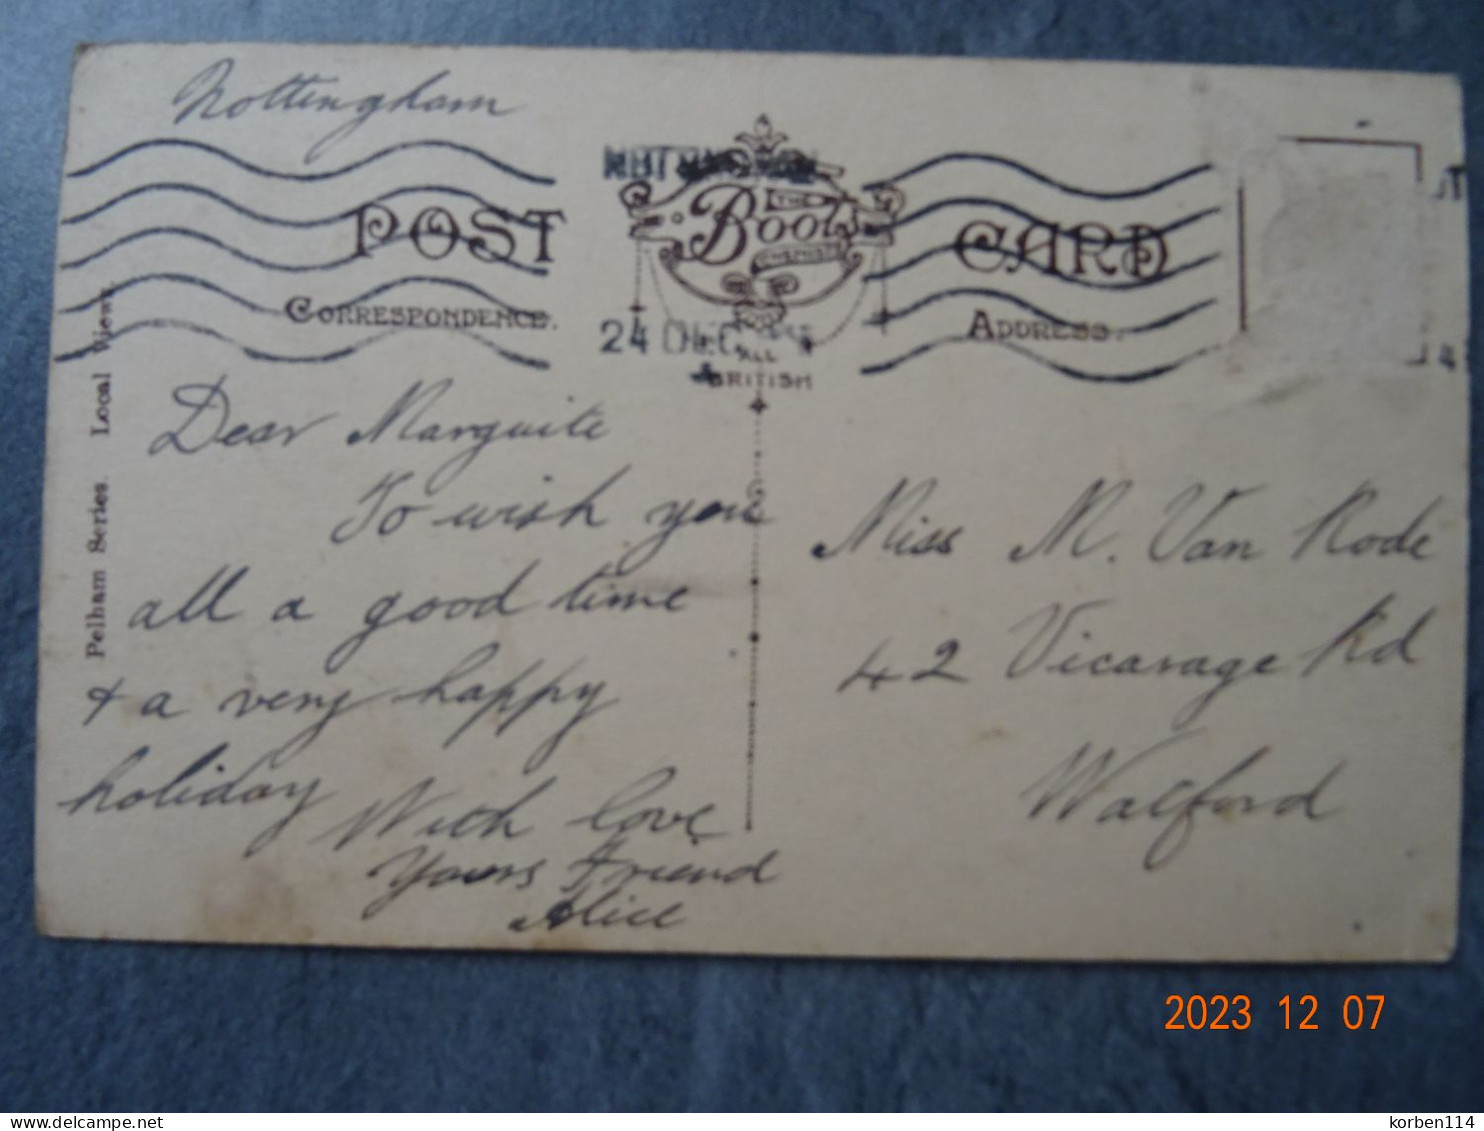 Nottingham
NOTTINGHAM
POST
THE
Boots
CHEMISTS
CARD
CORRESPONDENCE.
ADDRESS.
24 DEC
ALL
BRITISH
Pelham Series. Local Views.
Dear Marguite
To wish you
all a good time
& a very happy
holiday
With love
Yours Friend
Alice
Miss M. Van Rode
42 Vicarage Rd
Watford
2023 12 07
delcampe.net
korben114